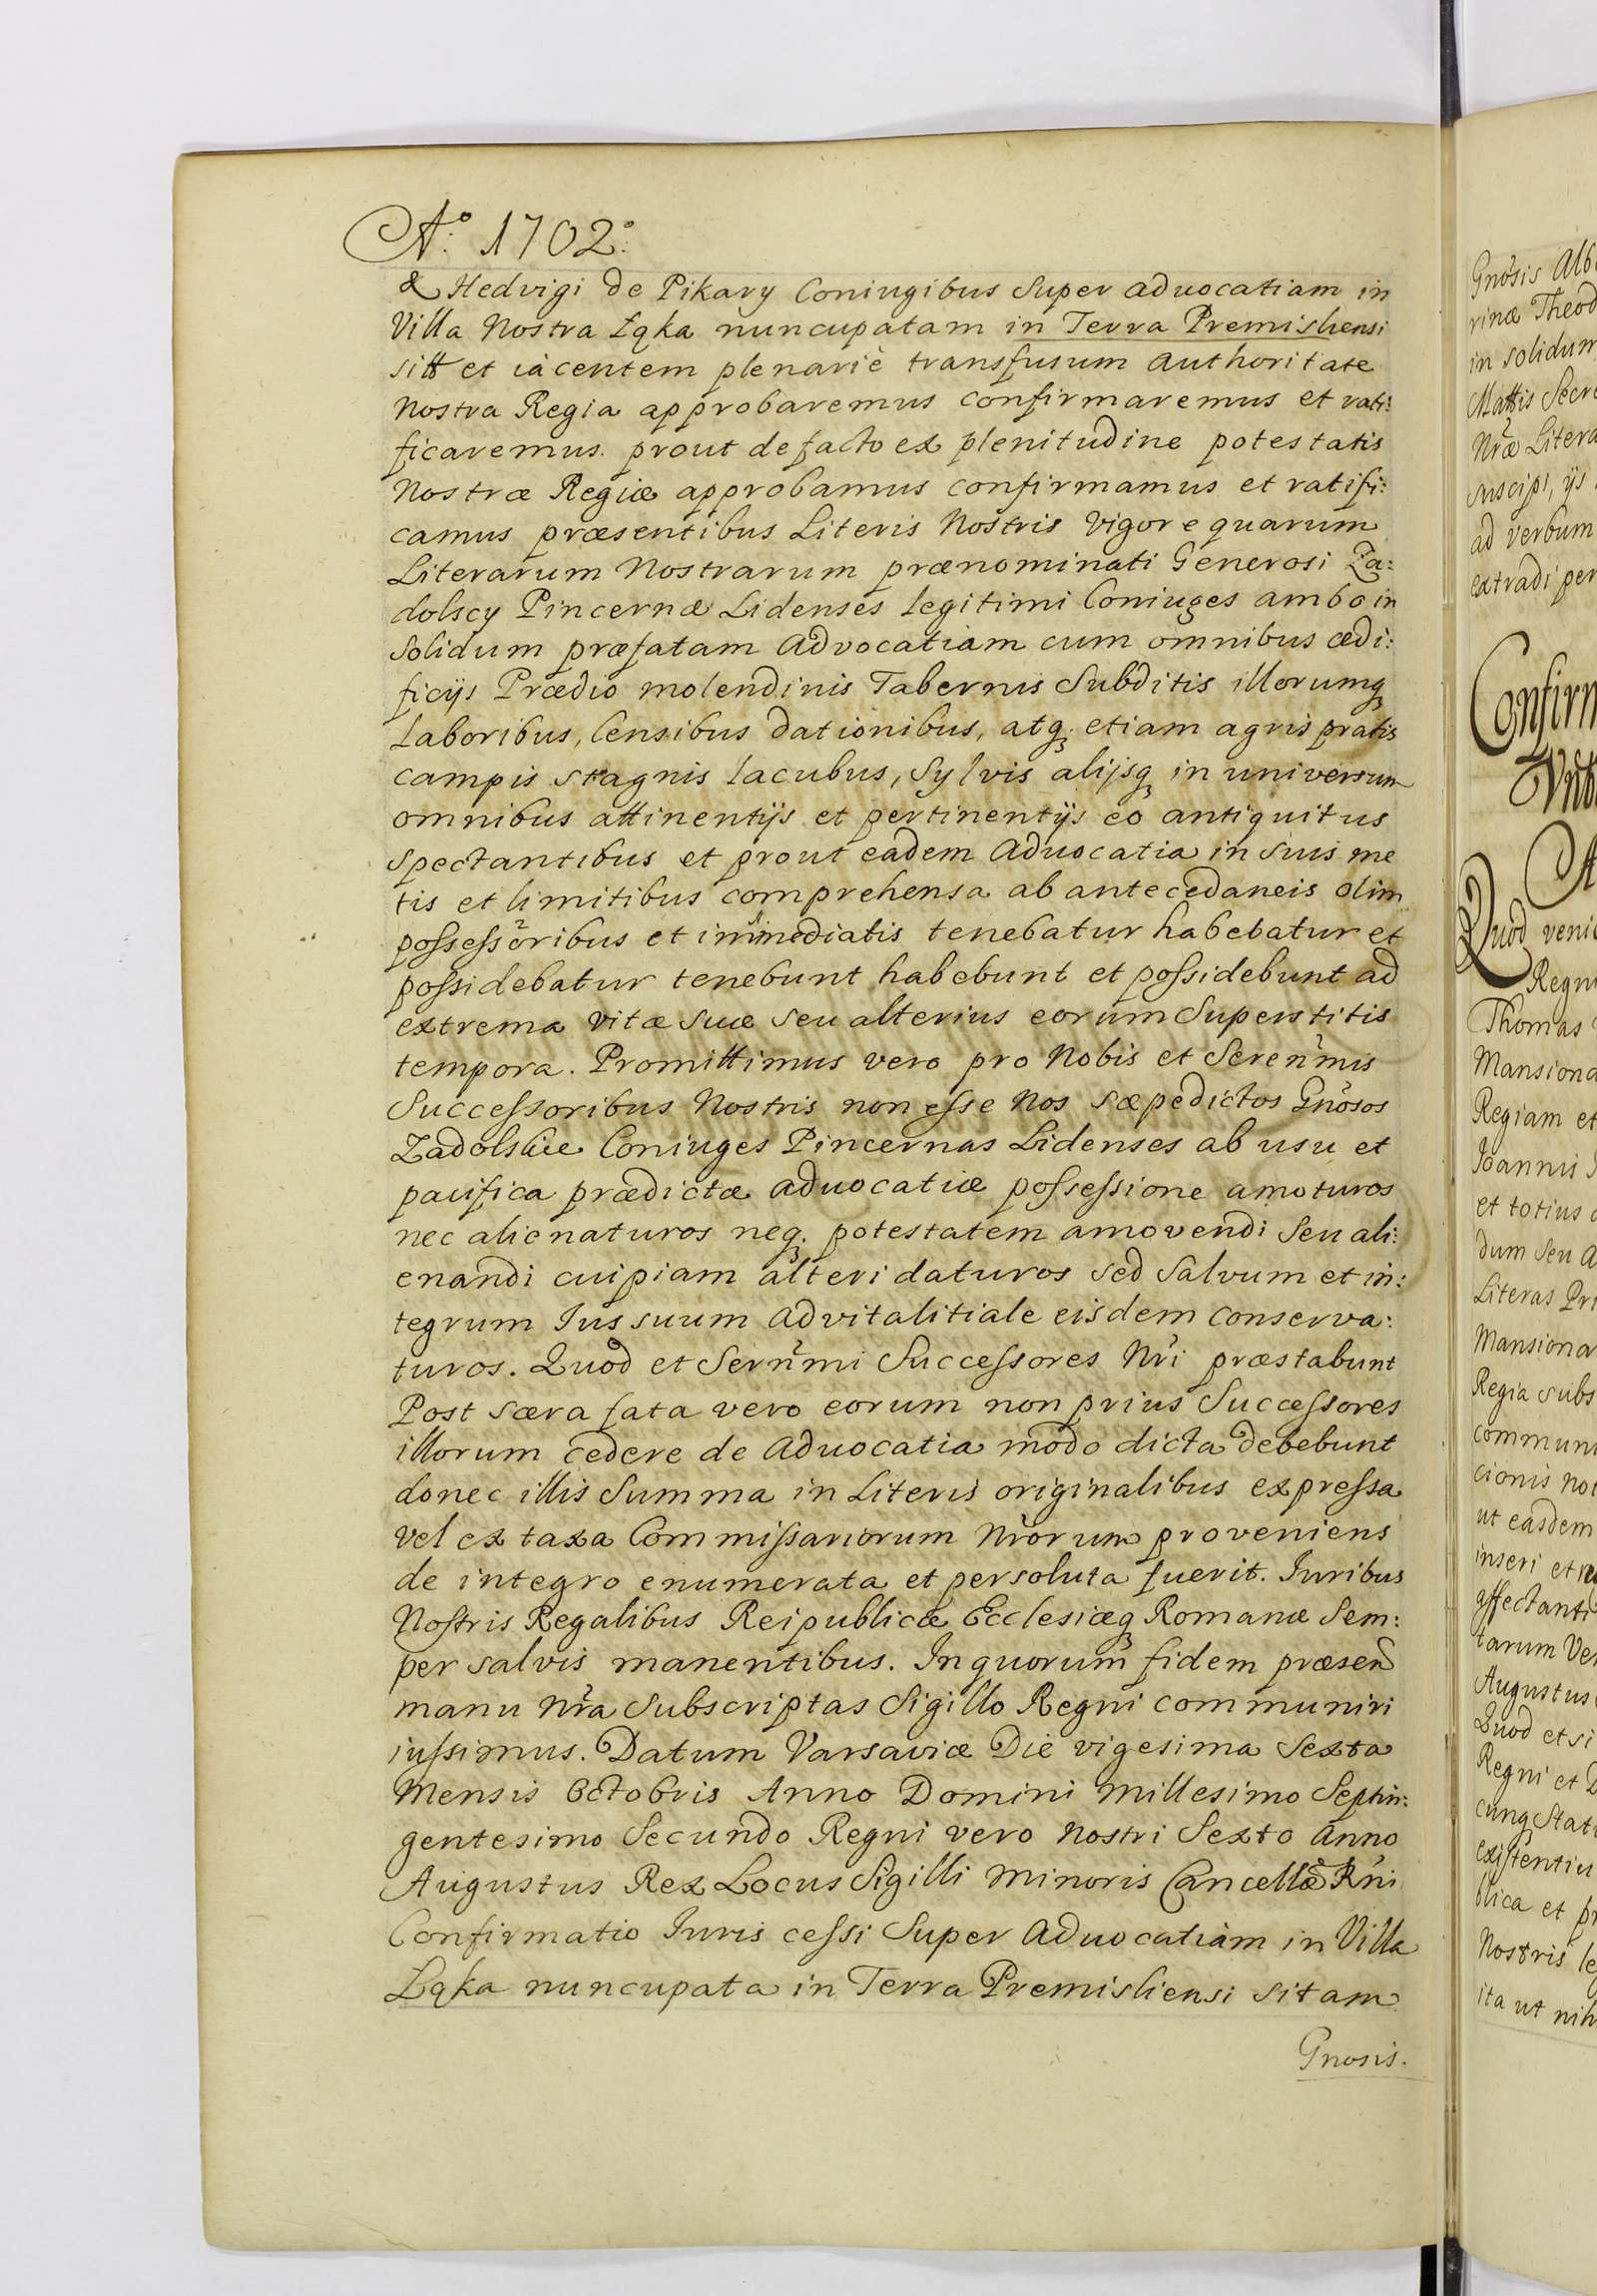 Aº. 1702º.
& Hedvigi de Pikary Coniugibus Super advocatiam in
Villa Nostra Łąka nuncupatam in Terra Premisliensi
sitt et iacentem plenariè transfusum Authoritate
Nostra Regia approbaremus confirmaremus et rati:
ficaremus. prout de facto ex plenitudine potestatis
Nostræ Regiæ approbamus confirmamus et ratifi:
camus præsentibus Literis Nostris vigore quarum
Literarum Nostrarum prænominati Generosi Za:
dolscy Pincernæ Lidenses legitimi Coniuges ambo in
Solidum præfatam Advocatiam cum omnibus ædi:
ficijs Prædio molendinis Tabernis Subditis illorumq
Laboribus, Censibus dationibus, atq. etiam agris pratis
campis stagnis lacubus, Sylvis alijsq in universum
omnibus attinentijs et pertinentijs eo antiquitus
spectantibus et prout eadem Advocatia in suis me
tis et limitibus comprehensa ab antecedaneis olim
possessoribus et immediatis tenebatur habebatur et
possidebatur tenebunt habebunt et possidebunt ad
extrema vitæ suæ seu alterius eorum Superstitis
tempora. Promittimus vero pro Nobis et Serenm̃is
Successoribus Nostris non esse Nos sæpedictos Gnõsos
Zadolskie Coniuges Pincernas Lidenses ab usu et
pacifica prædictæ advocatiæ possessione amoturos
nec alienaturos neq. potestatem amovendi seu ali:
enandi cuipiam alteri daturos sed Salvum et in:
tegrum Jus suum advitalitiale eisdem conserva:
turos. Quod et Sernm̃i Successores Nr̃i præstabunt
Post særa fata vero eorum non prius Successores
illorum cedere de Advocatia modo dicta debebunt
donec illis Summa in Literis originalibus expressa
vel ex taxa Commissariorum Nr̃orum proveniens
de integro enumerata et persoluta fuerit. Juribus
Nostris Regalibus Reipublicæ Ecclesiæq Romanæ Sem:
per salvis manentibus. In quorum fidem præsen̄
manu Nr̃a Subscriptas Sigillo Regni communiri
iussimus. Datum Varsaviæ Die vigesima Sexta
Mensis Octobris Anno Domini Millesimo Septin:
gentesimo Secundo Regni vero Nostri Sexto Anno
Augustus Rex Locus Sigilli Minoris Cancellæ Rñi
Confirmatio Juris cessi Super Advocatiam in Villa
Łąka nuncupata in Terra Premisliensi sitam
Gnosis.
Gnõsis Alb
rinæ Theod
in solidum
Mattis Secre
Nr̃æ Litera
suscipi, ijs
ad verbum
extradi per
Confirm
Quod venie
Regni
Thomas
Mansiona
Regiam et
Joannis
et totius
dum seu a
Literas Pri
Mansiona
Regia subs
communi
cionis no
ut easdem
inseri et
affectanti
tarum Ve
Augustus
Quod et si
Regni et
cunq Stat
existentiu
blica et pr
Nostris le
ita ut nih